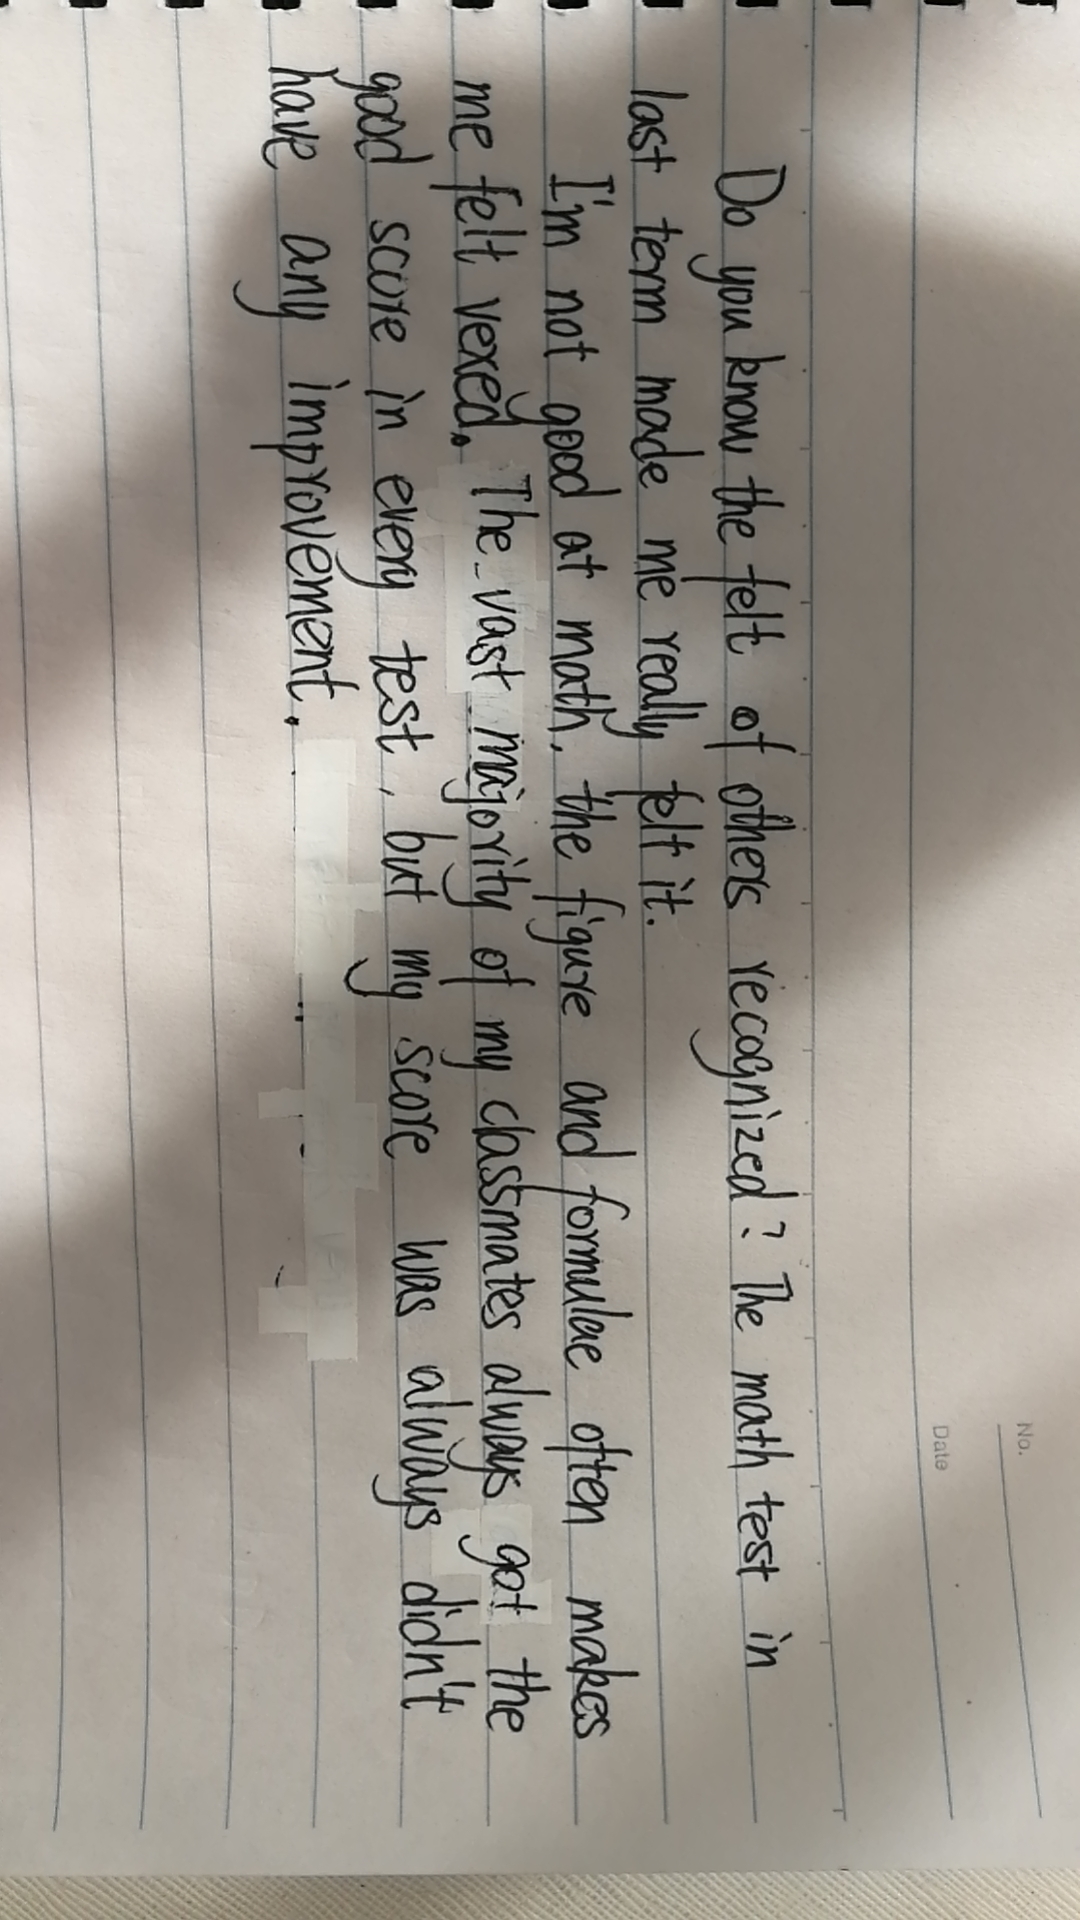 No.
Date
Do you know the felt of others recognized? The math test in
last term made me really felt it.
I'm not good at math, the figure and formulae often makes
me felt vexed. The vast majority of my classmates always got the
good score in every test, but my score was always didn't
have any improvement.